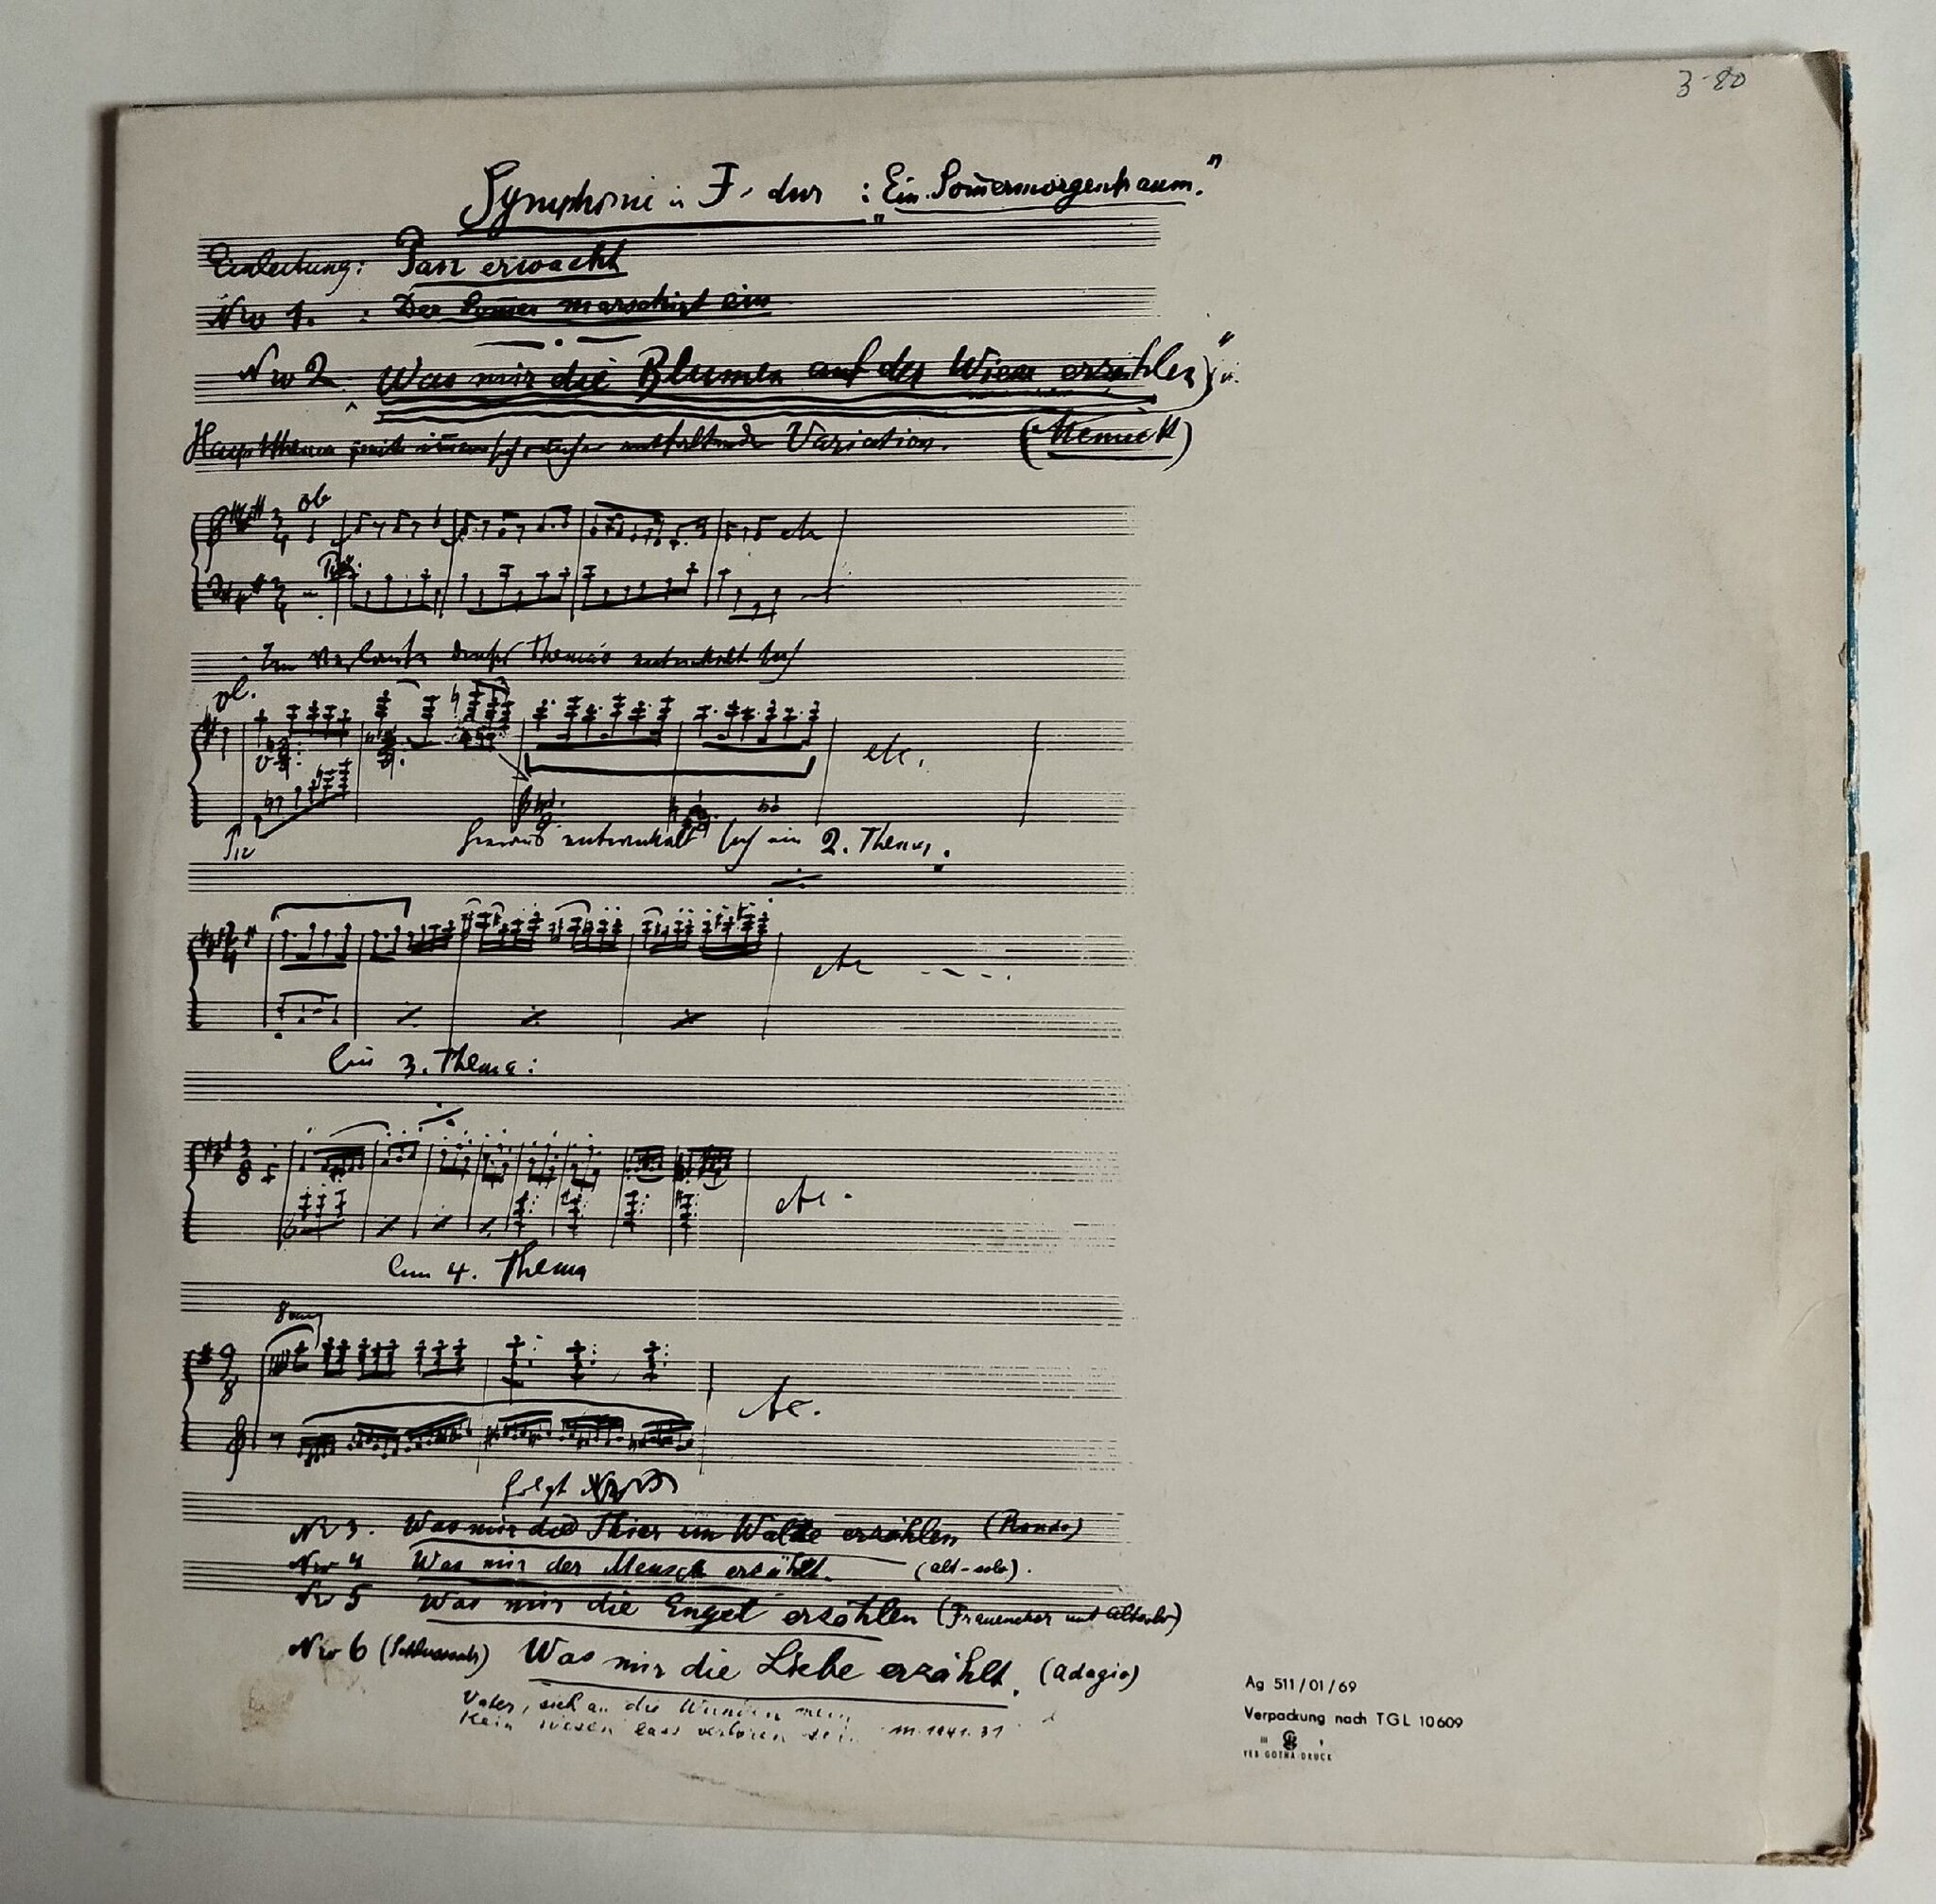 3-80
Symphonie in F-dur : „Ein Som̄ermorgentraum."
Einleitung: Pan erwacht
Nro 1. : Der Som̄er marschirt ein
Nro 2 Was mir die Blumen auf der Wiese erzählen"
Hauptthema mit entfaltender Variation. (Menuett)
ob
3/4
3/4
Im Verlaufe dieses Themas entwickelt sich
vl.
etc.
hieraus entwickelt sich ein 2. Thema.
etc
Ein 3. Thema:
3/8
etc.
Ein 4. Thema
9/8
etc.
folgt
Nr 3. Was mir die Thier im Walde erzählen (Rondo)
Nro 4 Was mir der Mensch erzählt. (alt-solo).
Nr 5 Was mir die Engel erzählen (Frauenchor mit Altsolo)
Nro 6 (Schlusssatz) Was mir die Liebe erzählt. (Adagio)
Vater, sieh an die Wunden mein,
Kein Wesen lass verloren sein
Ag 511/01/69
Verpackung nach TGL 10609
VEB GOTHA-DRUCK